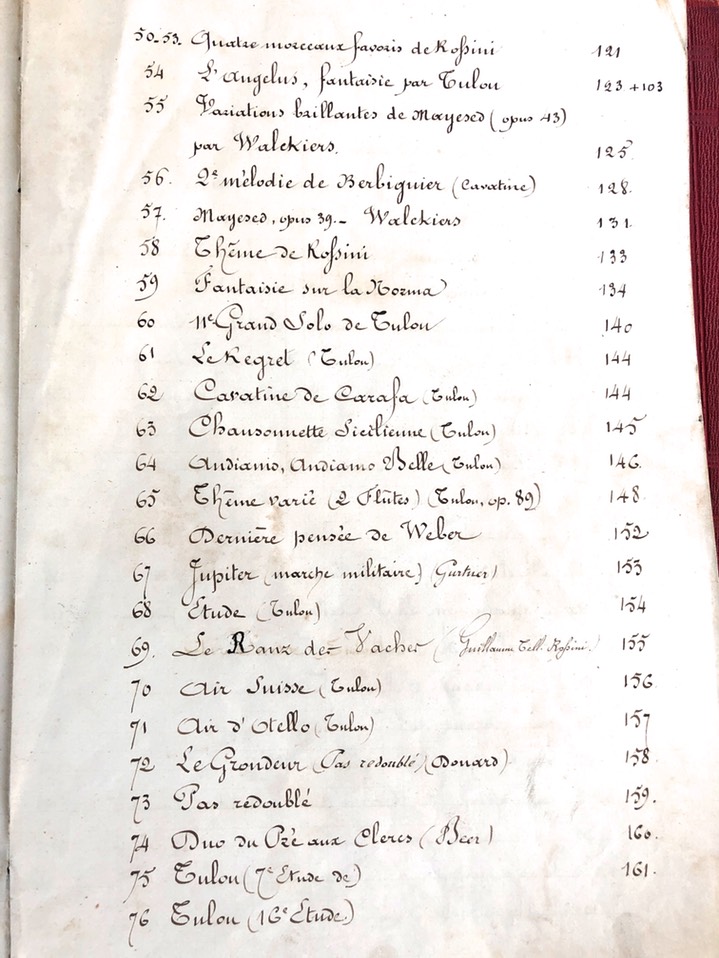 50-53. Quatre morceaux favoris de Rossini 121
54 L'Angelus, fantaisie par Tulou 123 + 103
55 Variations brillantes de Mayesed (opus 43)
par Walckiers. 125
56. 2e mélodie de Berbiguier (Cavatine) 128
57. Mayesed, opus 39. – Walckiers 131
58 Thême de Rossini 133
59 Fantaisie sur la Norma 134
60 11e Grand Solo de Tulou 140
61 Le Regret (Tulou) 144
62 Cavatine de Carafa (Tulou) 144
63 Chansonnette Sicilienne (Tulou) 145
64 Andiamo, Andiamo Belle (Tulou) 146
65 Thême varié (2 Flûtes) (Tulou, op. 89) 148
66 Dernière pensée de Weber 152
67 Jupiter (marche militaire) (Gurtner) 153
68 Etude (Tulou) 154
69. Le Ranz des Vaches (Guillaume Tell. Rossini.) 155
70 Air Suisse (Tulou) 156
71 Air d'Otello (Tulou) 157
72 Le Grondeur (Pas redoublé) (Douard) 158
73 Pas redoublé 159.
74 Duo du Pré aux Clercs (Beer) 160
75 Tulou (7e Etude de) 161
76 Tulou (16e Etude.)